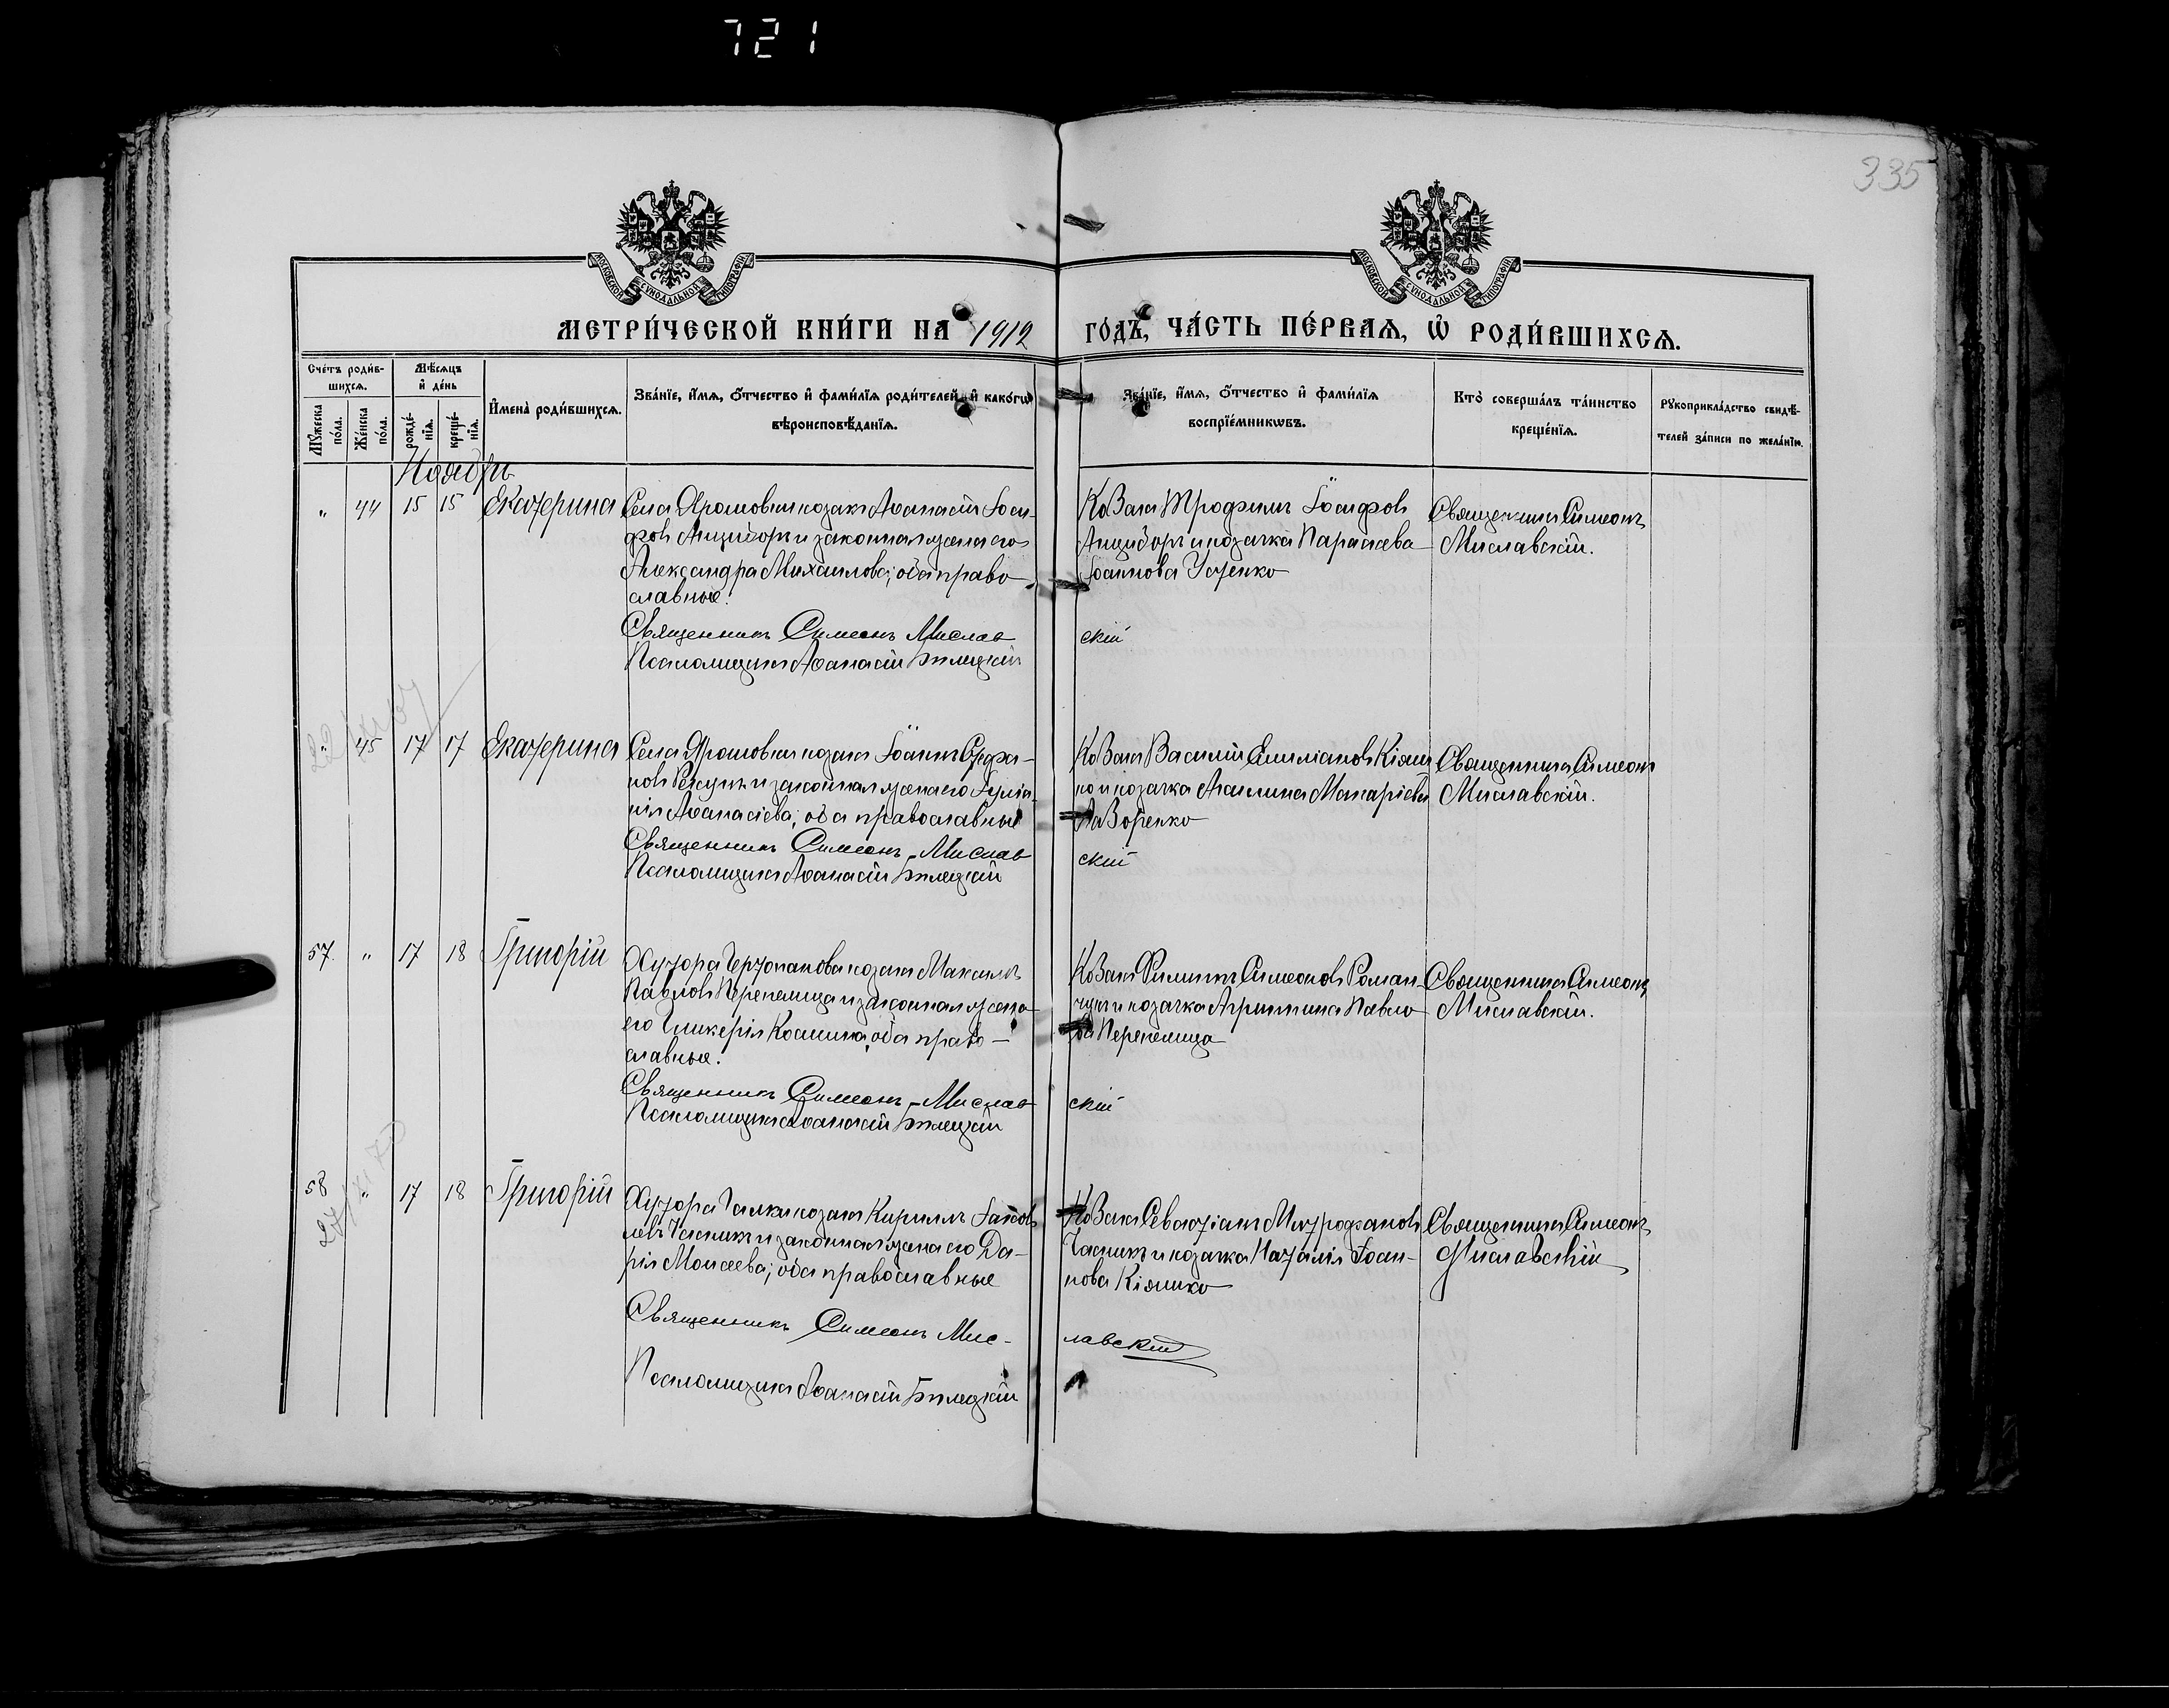 721
335
МОСКОВСКОЙ СѴНОДАЛЬНОЙ ТИПОГРАФІИ
МОСКОВСКОЙ СѴНОДАЛЬНОЙ ТИПОГРАФІИ
МЕТРИ́ЧЕСКОЙ КНИ́ГИ НА 1912 ГО́ДЪ, ЧА́СТЬ ПЕ́РВАѦ, Ѡ҆ РОДИ́ВШИХСѦ.
Сче́тъ роди́вшихсѧ.
Мѣ́сѧцъ и҆ де́нь
Мꙋ́жеска по́ла.
Же́нска по́ла.
рожде́нїѧ.
креще́нїѧ.
И҆мена̀ роди́вшихсѧ.
Зва́нїе, и҆́мѧ, ѻ҆́тчество и҆ фами́лїѧ роди́телей, и҆ како́гѡ
вѣроисповѣ́данїѧ.
Зва́нїе, и҆́мѧ, ѻ҆́тчество и҆ фами́лїѧ
воспрїе́мникѡвъ.
Кто̀ соверша́лъ та́инство
креще́нїѧ.
Рꙋкоприкла́дство свидѣ́-
телей за́писи по жела́нїю.
Ноябрь
" 44 15 15 Екатерина
Села Ярошовки козакъ Аѳанасій Іоси-
фовъ Анциборъ и законная жена его
Александра Михаилова; оба право-
славные.
Священникъ Симеонъ Миславскій
Псаломщикъ Аѳанасій Билецкій
Козакъ Трофимъ Іосифовъ
Анциборъ и козачка Параскева
Іоаннова Усенко
Священникъ Симеонъ
Миславскій.
" 45 17 17 Екатерина
Села Ярошовки козакъ Іоаннъ Стефа-
новъ и законная жена его Іуліа-
нія Аѳанасіева; оба православные
Священникъ Симеонъ Миславскій
Псаломщикъ Аѳанасій Билецкій
Козакъ Василій Емиліановъ Кіяш
ко и козачка Акилина Макаріева
Священникъ Симеонъ
Миславскій.
57. " 17 18 Григорій
Хутора козакъ Максимъ
Павловъ Перепелица и законная жена
его Гликерія Космина, оба право-
славные.
Священникъ Симеонъ Миславскій
Псаломщикъ Аѳанасій Билецкій
Козакъ Филиппъ Симеоновъ Роман-
чукъ и козачка Агриппина Павло-
ва Перепелица
Священникъ Симеонъ
Миславскій.
58 " 17 18 Григорій
Хутора Галки козакъ Кириллъ Іаков-
левъ Часникъ и законная жена его Да-
рія Моисеева; оба православные
Священникъ Симеонъ Миславскій
Псаломщикъ Аѳанасій Билецкій
Козакъ Севастіанъ Митрофановъ
Часникъ и козачка Наталія Іоан-
нова Кіяшко
Священникъ Симеонъ
Миславскій